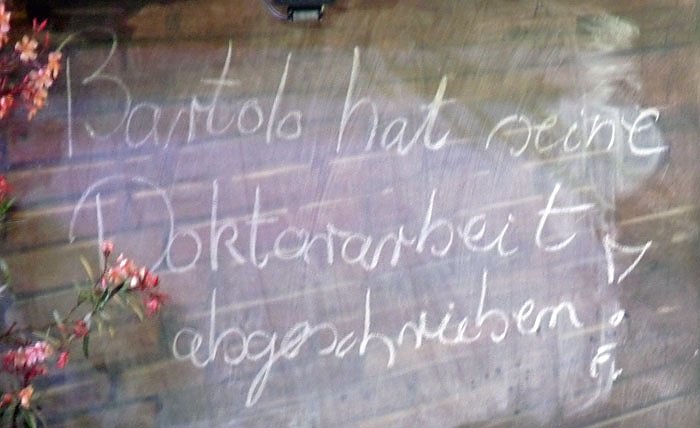 Bartolo hat seine
Doktorarbeit
abgeschrieben!